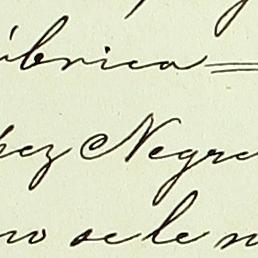 úbrica=
pez Negre
no se le n